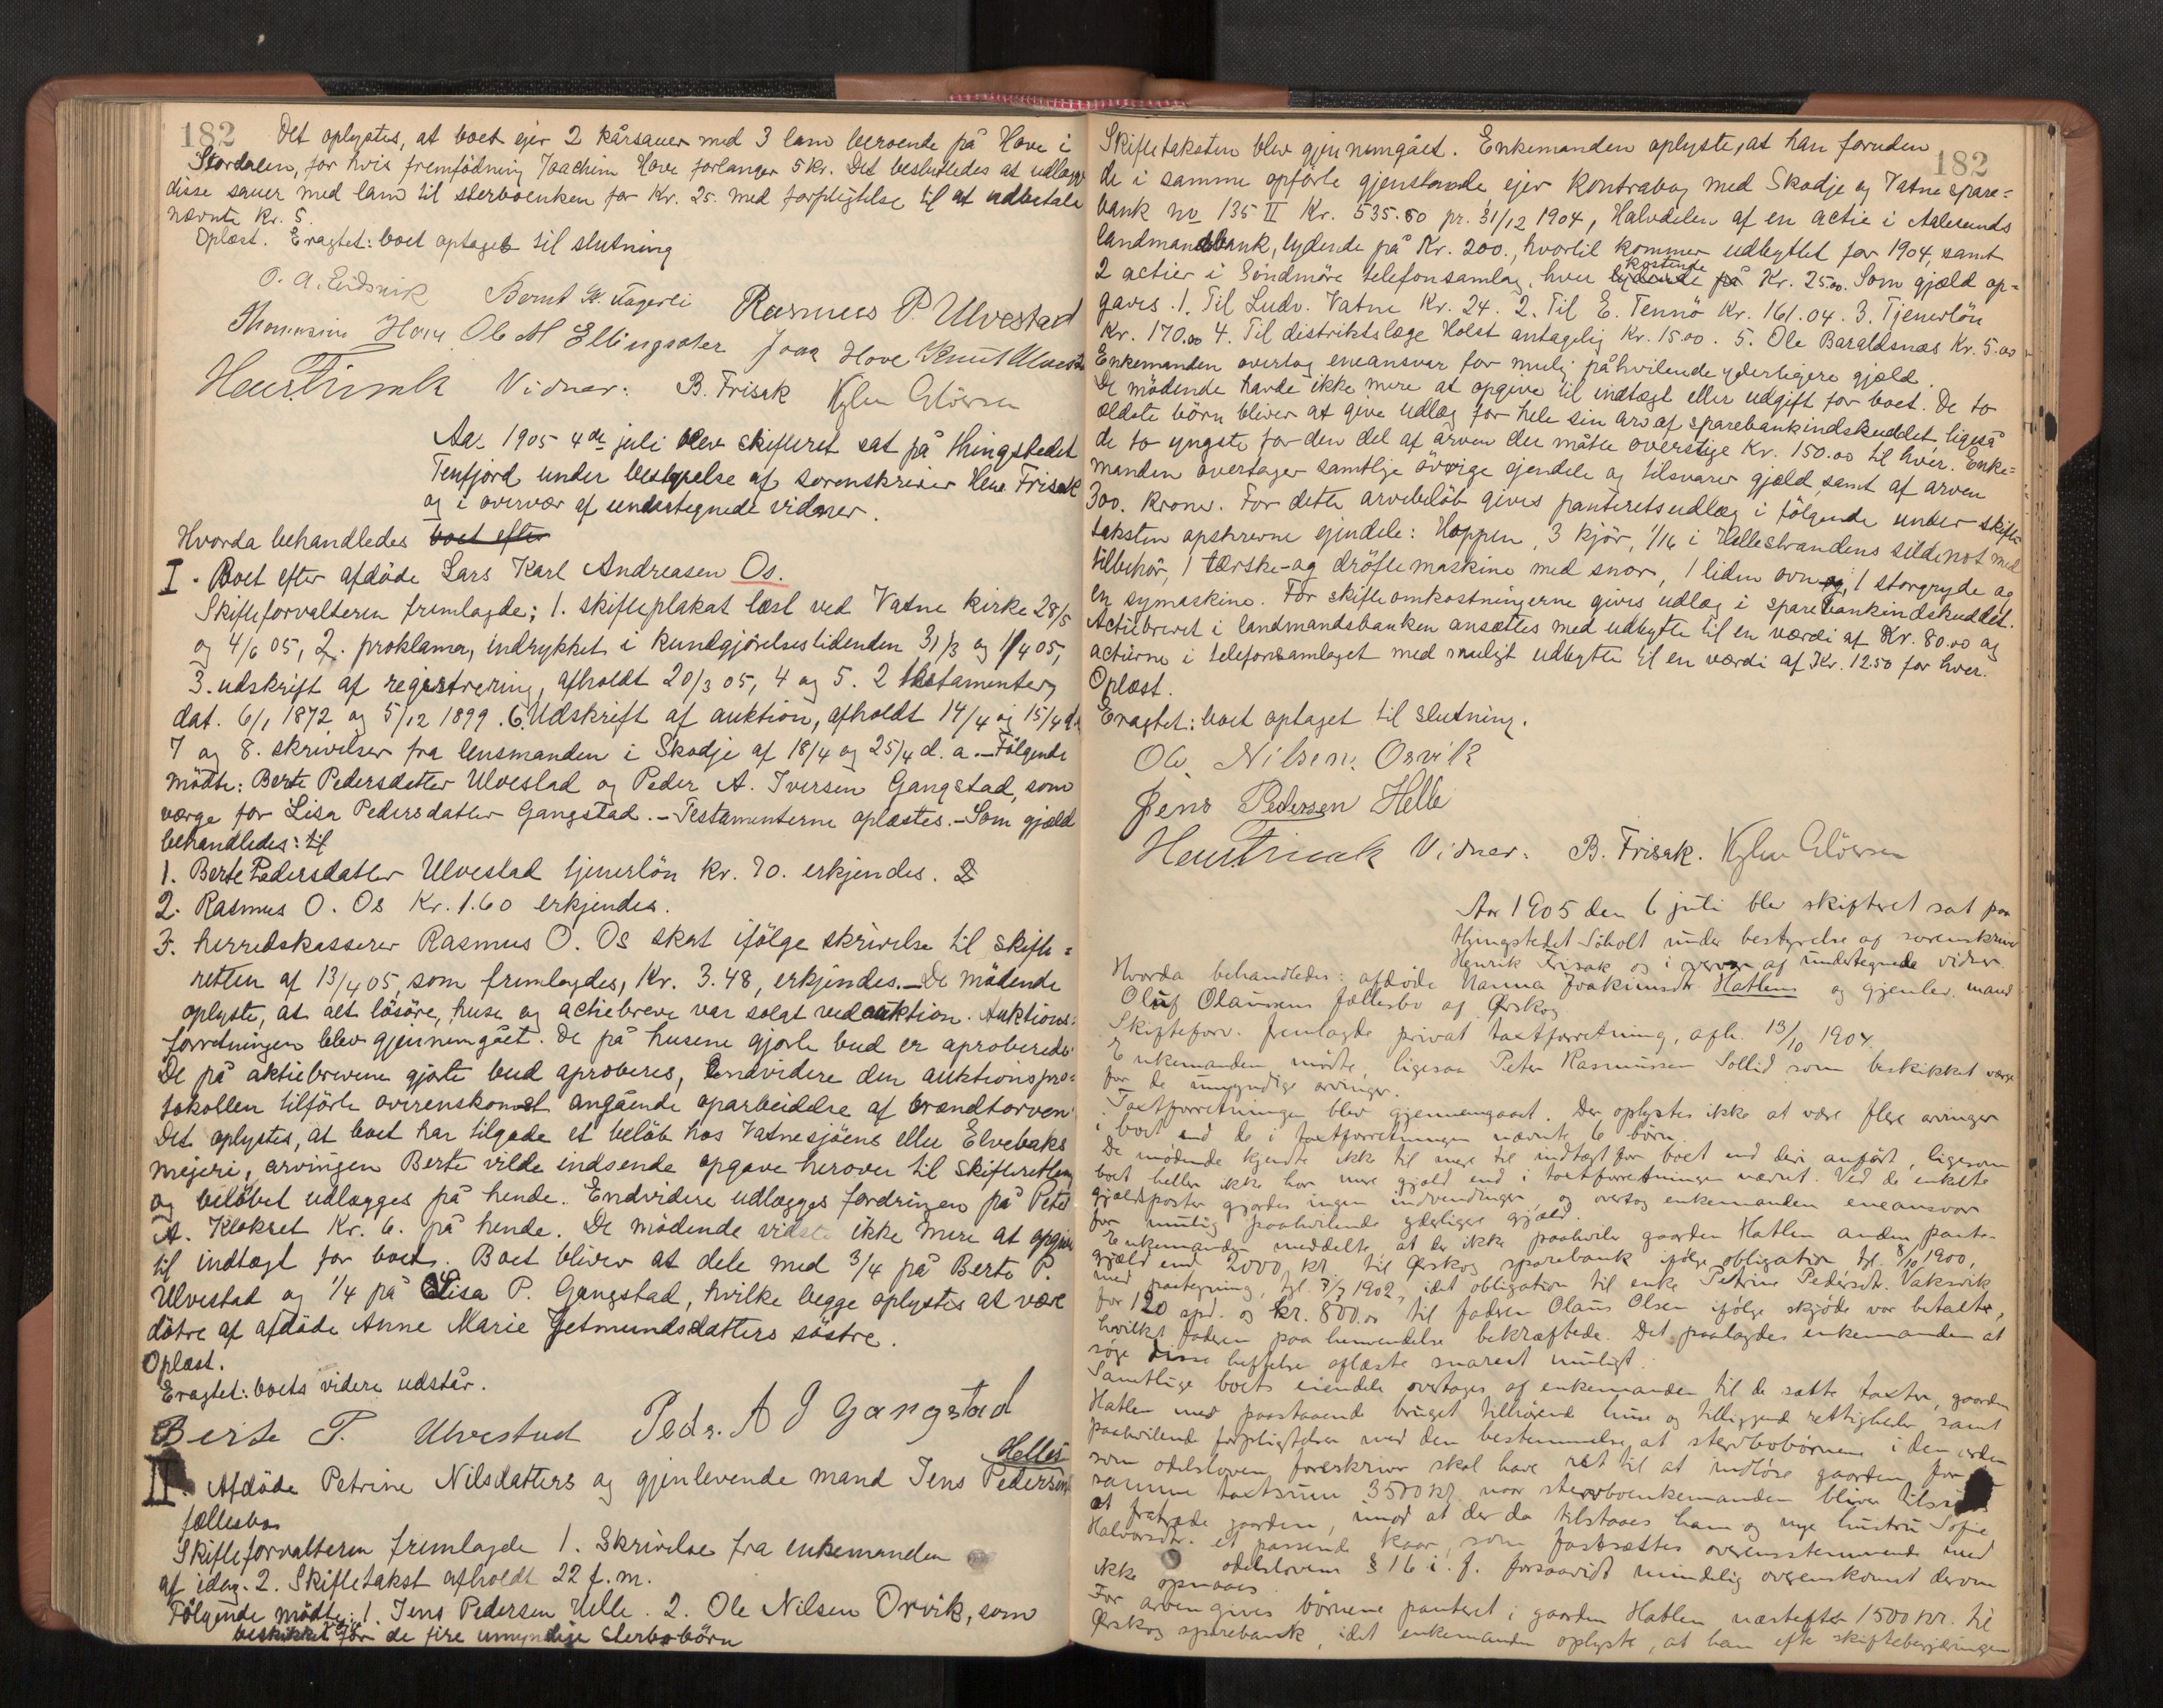 182
Det oplystes, at boet ejer 2 kårsauer med 3 lam beroende på Hove i
Stordalen, for hvis fremfödning Joachim Hove forlanger 5 kr. Det besluttedes at udlægge
disse sauer med lam til sterboenken for Kr. 25. med forpligtelse til at udbetale
nævnte kr. 5.
Oplæst. Eragtet: boet optaget til slutning
O. A. Eidsvik Bernt K. Fagerli Rasmus P. Ulvestad
Thomasine Hove Ole M Ellingsæter Joak Hove Knut Ulvestad
Henr Frisak Vidner: B. Frisak
Aar 1905 4de juli blev skifteret sat på thingstedet
Tenfjord under bestyrelse af sorenskriver Henr Frisak
og i overvær af undertegnede vidner.
Hvorda behandledes boet efter
I. Boet efter afdöde Lars Karl Andreasen Os.
Skifteforvalteren fremlagde: 1. skifteplakat læst ved Vatne kirke 28/5
og 4/6 05, 2. proklama, indrykket i kundgjörelsestidenden 31/3 og 1/4 05,
3. udskrift af registrering, afholdt 20/3 05, 4 og 5. 2 testamenter,
dat. 6/1 1872 og 5/12 1899. 6. Udskrift af auktion, afholdt 14/4 og 15/4 d.a.
7 og 8. skrivelser fra lensmanden i Skodje af 18/4 og 25/4 d. a. – Fölgende
mödte: Berte Pedersdatter Ulvestad og Peder A. Iversen Gangstad, som
værge for Lisa Pedersdatter Gangstad. – Testamenterne oplæstes. – Som gjæld
behandledes: til
1. Berte Pedersdatter Ulvestad tjenerlön kr. 70. erkjendes. 2
2. Rasmus O. Os Kr. 1.60 erkjendes.
3. herredskasserer Rasmus O. Os skat ifölge skrivelse til skifte=
retten af 13/4 05, som fremlagdes, Kr. 3.48, erkjendes. – De mödende
oplyste, at alt lösöre, huse og actiebreve var solgt ved auktion. Auktions=
forretningen blev gjennemgået. De på husene gjorte bud er aproberede.
De på aktiebrevene gjorte bud aproberes, Endvidere den auktionspro=
tokollen tilförte overenskomst angående oparbeidelse af brændtorven.
Det oplystes, at boet har tilgode et belöb hos Vatnesjöens eller Elvebaks
mejeri, arvingen Berte vilde indsende opgave herover til skifteretten
og belöbet udlægges på hende. Endvidere udlægges fordringen på Peter
A. Klokset Kr. 6. på hende. De mödende vidste ikke mere at opgive
til indtægt for boet. Boet bliver at dele med 3/4 på Berte P.
Ulvestad og 1/4 på Lisa P. Gangstad, hvilke begge oplystes at være
dötre af afdöde Anne Marie Getmundsdatters söstre.
Oplæst.
Eragtet: boets videre udstår.
Berte P. Ulvestad Pedr. A I Gangstad
II Afdöde Petrine Nilsdatters og gjenlevende mand Jens Pedersens Helles
fællesbo
Skifteforvalteren fremlagde 1. Skrivelse fra enkemanden
af idag. 2. Skiftetakst afholdt 22 f. m.
Fölgende mödte: 1. Jens Pedersen Helle. 2. Ole Nilsen Orvik, som
beskikket værge for de fire umyndige sterbobörn
182
Skiftetaksten blev gjennemgået. Enkemanden oplyste, at han foruden
de i samme opförte gjenstande ejer kontrabog med Skodje og Vatne spare=
bank no 135 II Kr. 535.80 pr. 31/12 1904, Halvdelen af en actie i Aalesunds
landmandsbank, lydende på Kr. 200., hvortil kommer udbyttet for 1904, samt
2 actier i Söndmöre telefonsamlag, hver lydende på kostende Kr. 25.00. Som gjæld op=
gaves. 1. Til Ludv. Vatne Kr. 24. 2. Til E. Tennö Kr. 161.04. 3. Tjenerlön
Kr. 170.00 4. Til distriktslæge Holst antagelig Kr. 15.00. 5. Ole Baraldsnæs Kr. 5.00
Enkemanden overtog eneansvar for mulig påhvilende yderligere gjæld.
De mödende havde ikke mere at opgive til indtægt eller udgift for boet. De to
ældste börn bliver at give udlæg for hele sin arv af sparebankindskuddet, ligeså
de to yngste for den del af arven der måtte overstige Kr. 150.00 til hver. Enke=
manden overtager samtlige övrige ejendele og tilsvarer gjæld, samt af arven
300. kroner. For dette arvebelöb gives panteretsudlæg i fölgende under skifte=
taksten opskrevne ejendele: Hoppen, 3 kjör, 1/16 i Hellestrandens sildenot med
tilbehör, 1 tærske- og dröftemaskine med snor, 1 liden ovn og, 1 storgryde og
en symaskine. For skifteomkostningerne gives udlæg i sparebankindskuddet.
Actiebrevet i landmandsbanken ansættes med udbytte til en værdi af Kr. 80.00 og
actierne i telefonsamlaget med muligt udbytte til en værdi af Kr. 12.50 for hver.
Oplæst.
Eragtet: boet optaget til slutning.
Ole Nilsen Orvik
Jens Pedersen Helle
Henr Frisak Vidner: B. Frisak.
Aar 1905 den 6 juli blev skifteret sat paa
thingstedet Söholt under bestyrelse af sorenskriver
Henrik Frisak og i overvær af undertegnede vidner.
Hvorda behandledes: afdøde Nanna Joakimsdr. Hatlens og gjenlev. mand
Oluf Olaussens fællesbo af Ørskog
Skifteforv. fremlagde privat taxtforretning, afh. 13/10 1904.
Enkemanden mødte, ligesaa Peter Rasmussen Sollid som beskikket værge
for de umyndige arvinger.
Taxtforretningen blev gjennemgaaet. Der oplystes ikke at være flere arvinger
i boet end de i taxtforretningen nævnte 6 børn.
De mødende kjendte ikke til mere til indtægt for boet end deri anført, ligesom
boet heller ikke har mere gjæld end i taxtforretningen nævnt. Ved de enkelte
gjældsposter gjordes ingen indvendinger og overtog enkemanden eneansvar
for mulig paahvilende yderligere gjæld.
Enkemanden meddelte, at der ikke paahviler gaarden Hatlen anden pante-
gjæld end 2000 kr. til Ørskog sparebank ifølge obligation tgl. 8/10 1900,
med paategning, tgl. 7/7 1902, idet obligation til enke Petrine Pedersdr. Vaksvik
for 120 spd. og kr. 800.00 til faderen Olaus Olsen ifølge skjøde var betalte,
hvilket faderen paa henvendelse bekræftede. Det paalagdes enkemanden at
søge disse heftelser aflæste snarest muligt.
Samtlige boets eiendele overtages af enkemanden til de satte taxter, gaarden
Hatlen med paastaaende bruget tilhørende huse og tilliggende rettigheder samt
paahvilende forpligtelser med den bestemmelse, at sterbobørnene i den orden
som odelsloven foreskriver skal have ret til at indløse gaarden for
samme taxtsum 3500 kr. naar sterboenkemanden bliver
at fratræde gaarden, imod at der da tilstaaes ham og nye hustru Sofie
Halvorsdr. et passende kaar, som fastsættes overensstemmende med
odelslovens § 16 i. f. forsaavidt mindelig overenskomst derom
ikke opnaaes.
For arven gives børnene panteret i gaarden Hatlen næstefter 1500 kr. til
Ørskog sparebank, idet enkemanden oplyste, at han efter skiftebegjæringen